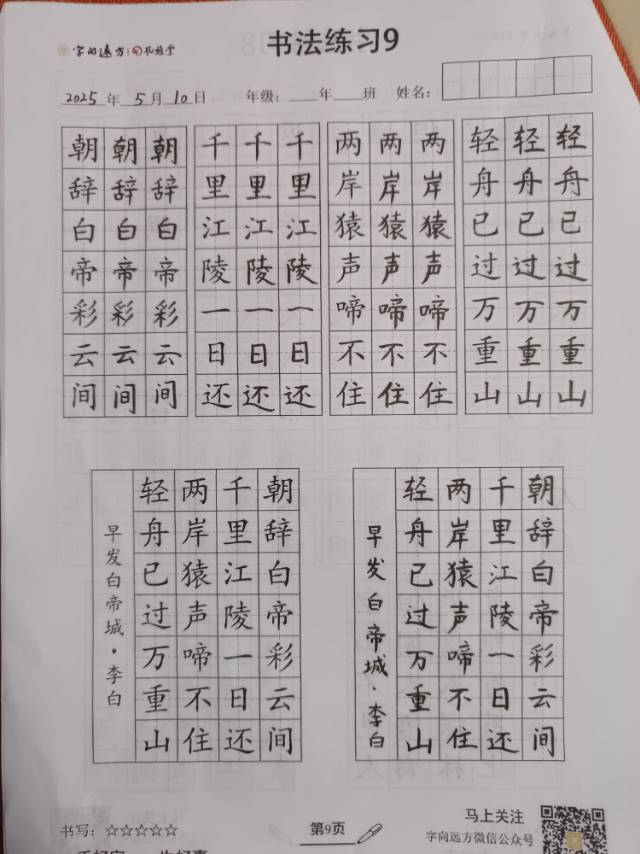 书法练习9
字向远方
2025年5月10日 年级：____年____班 姓名：
朝朝朝 千千千 两两两 轻轻轻
辞辞辞 里里里 岸岸岸 舟舟舟
白白白 江江江 猿猿猿 已已已
帝帝帝 陵陵陵 声声声 过过过
彩彩彩 一一一 啼啼啼 万万万
云云云 日日日 不不不 重重重
间间间 还还还 住住住 山山山
朝辞白帝彩云间
千里江陵一日还
两岸猿声啼不住
轻舟已过万重山
早发白帝城·李白
朝辞白帝彩云间
千里江陵一日还
两岸猿声啼不住
轻舟已过万重山
早发白帝城·李白
书写：☆☆☆☆☆
第9页
马上关注
字向远方微信公众号